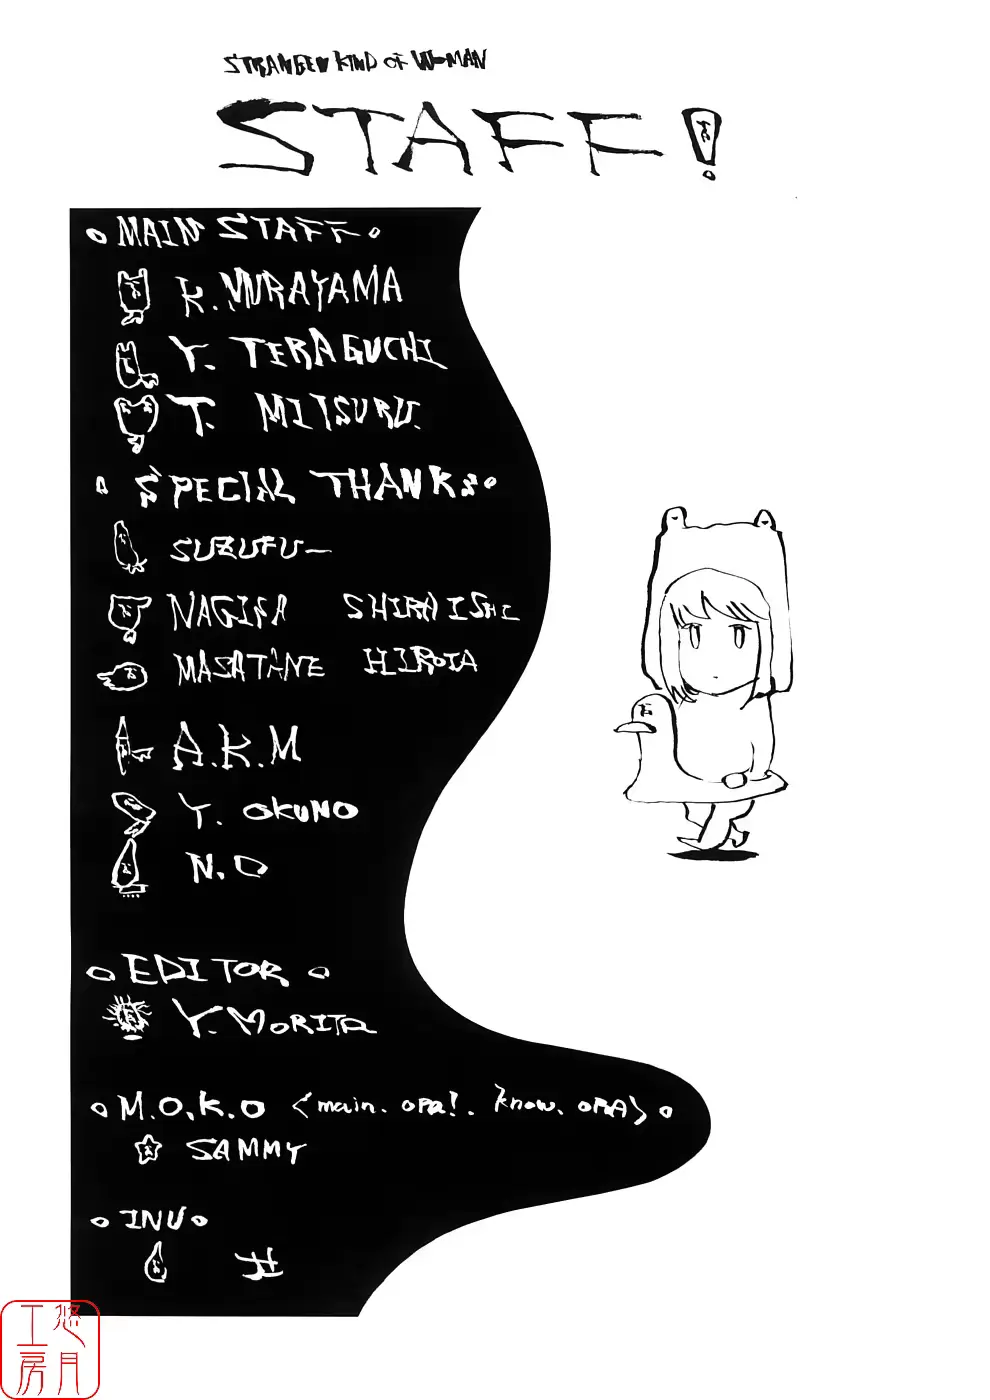 STRANGEU KIND OF WOMAN
STAFF!
MAIN STAFF
K. MURAYAMA
Y. TERAGUCHI
T. MITSURU.
SPECIAL THANKS
SUZUFU—
NAGISA SHIRAISHI
MASATANE HIROTA
A.K.M
Y. OKUNO
N.O
EDITOR
Y. MORITA
M.O.K.O <main. opa!. know. opA>
SAMMY
INU
井
悠月
工房